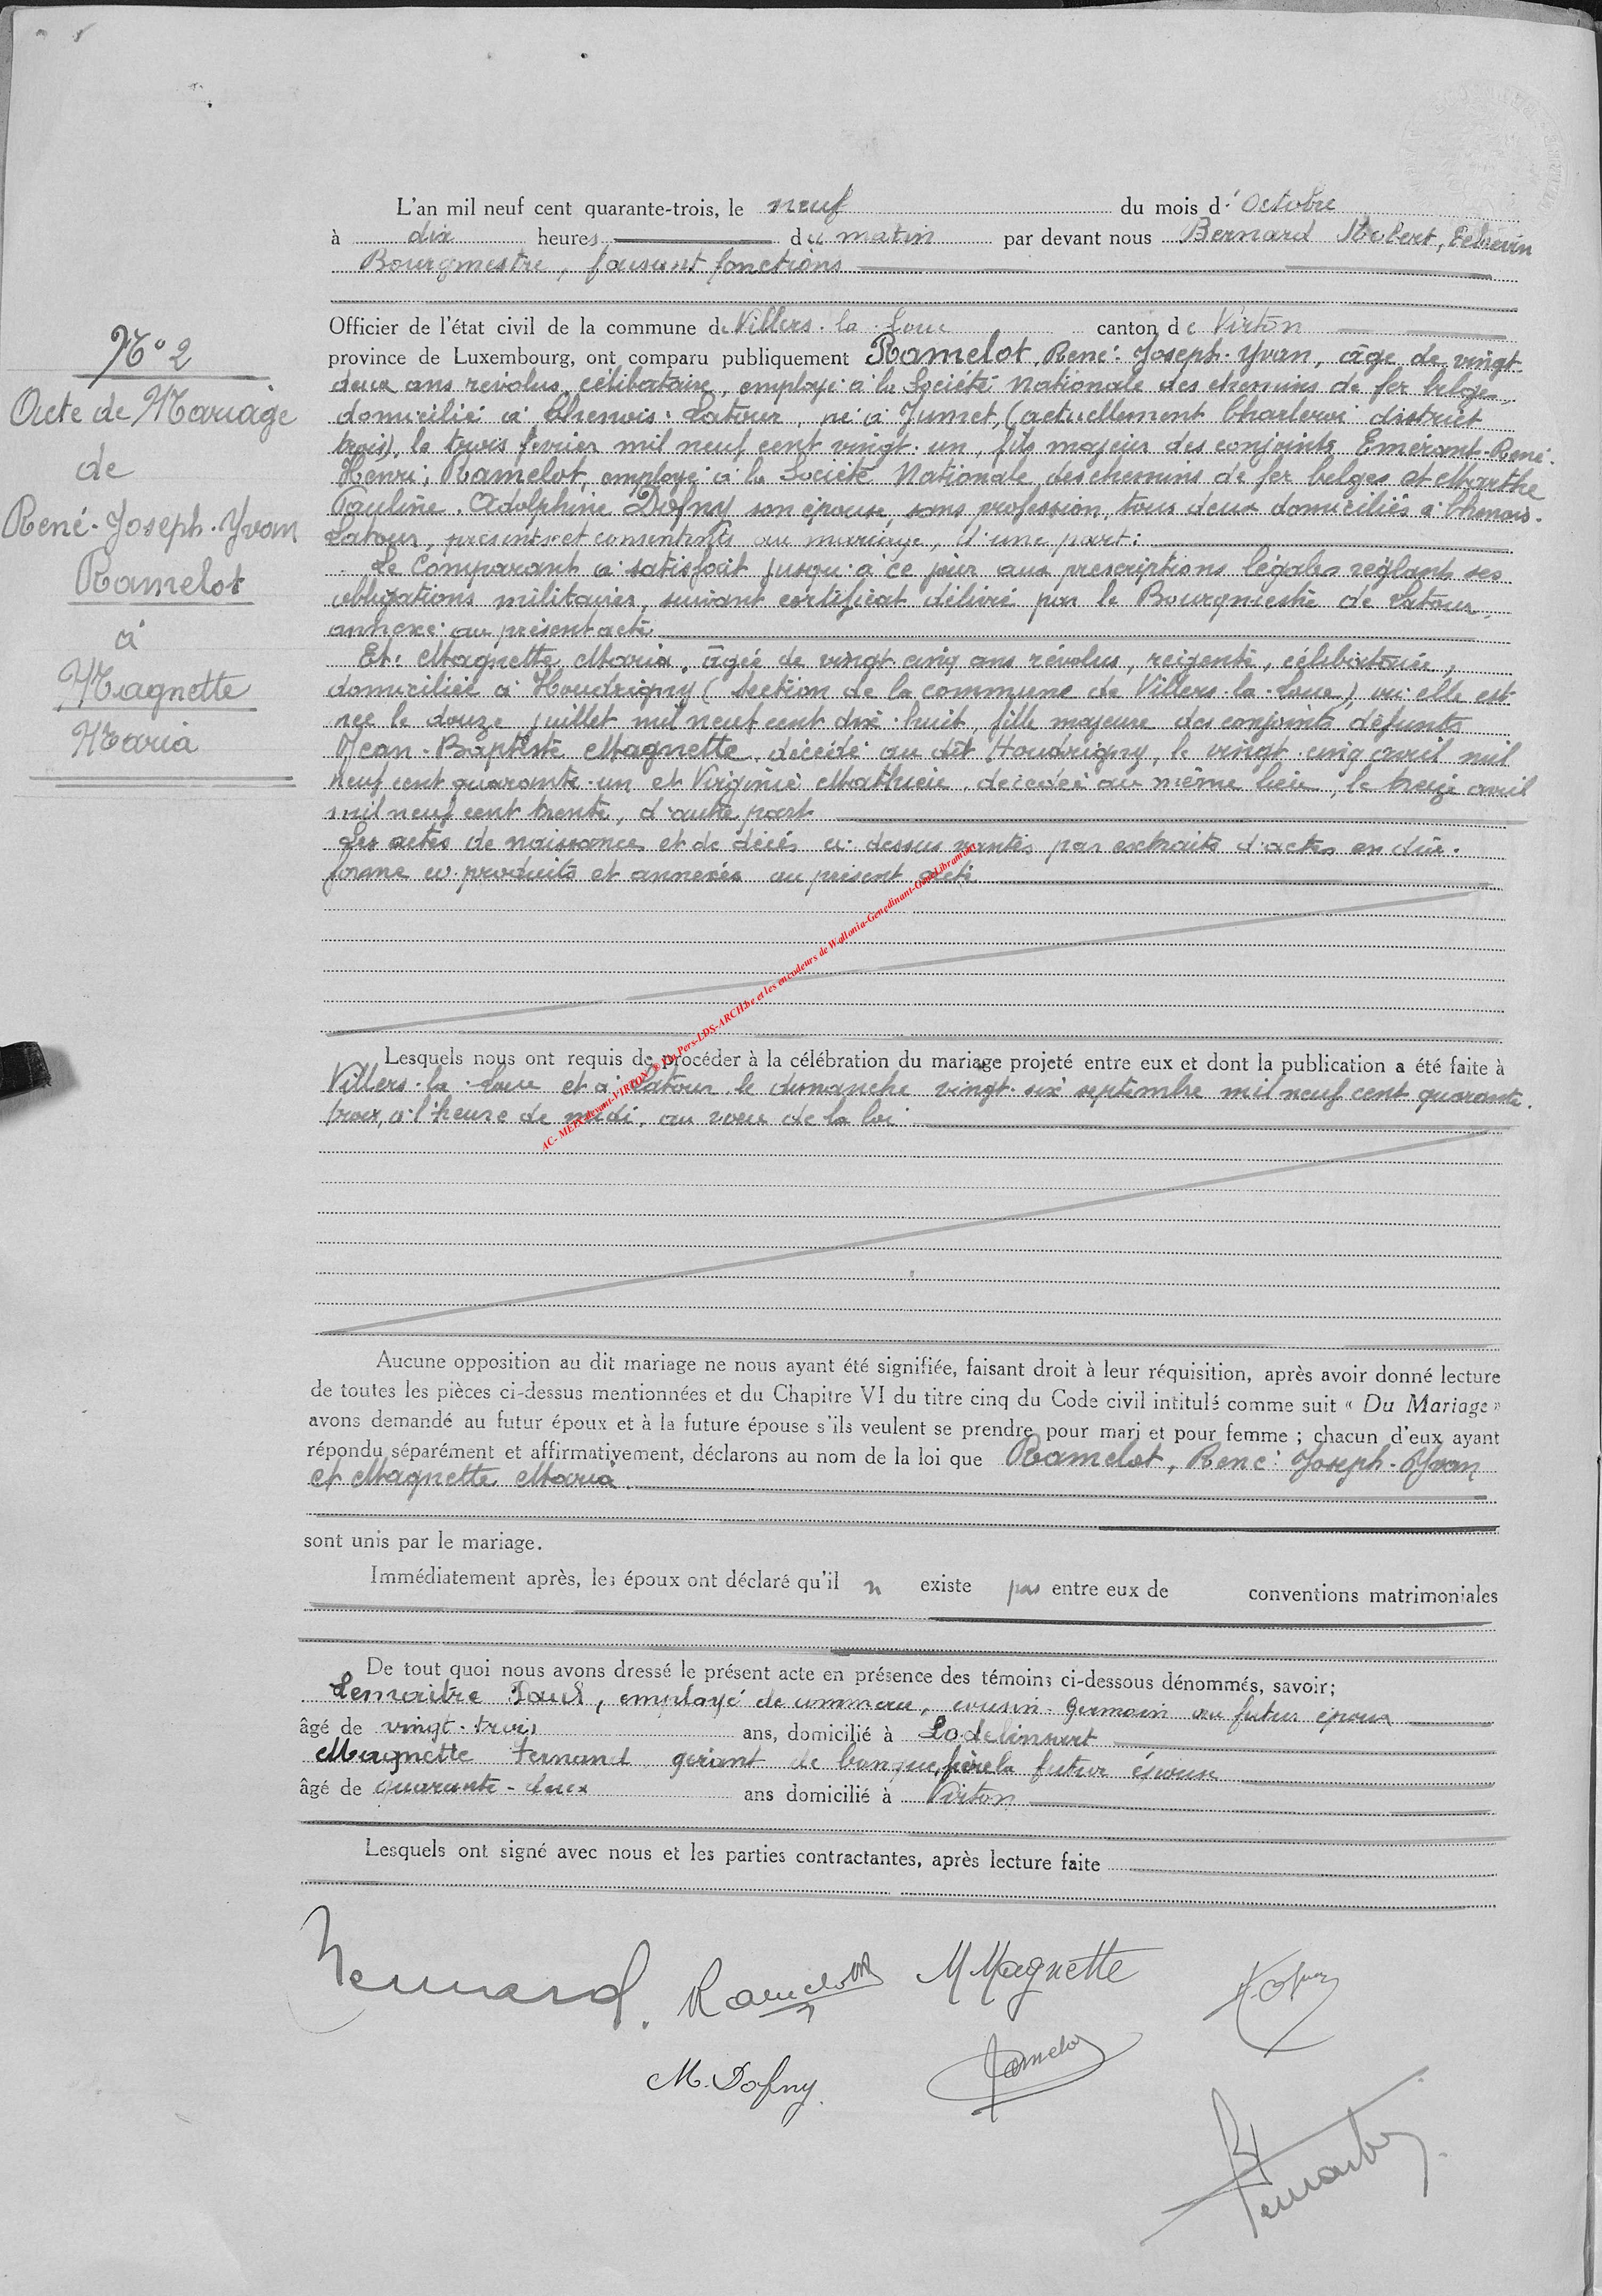 L'an mil neuf cent quarante-trois, le neuf du mois d' Octobre
à dix heures du matin par devant nous Bernard Robert, Echevin
Bourgmestre, faisant fonctions
Officier de l'état civil de la commune de Villers-la-Loue canton de Virton
province de Luxembourg, ont comparu publiquement Ramelot, René-Joseph-Yvan, âgé de vingt-
deux ans révolus, célibataire, employé à la Société Nationale des chemins de fer belges,
domicilié à Chenois-Latour, né à Jumet, (actuellement Charleroi district
trois), le trois février mil neuf cent vingt-un, fils majeur des conjoints Emérant-René-
Henri; Ramelot, employé à la Société Nationale des chemins de fer belges et Marthe
Pauline-Adolphine Dofny son épouse, sans profession, tous deux domiciliés à Chenois-
Latour, présents et consentants au mariage, d'une part:
Le Comparant a satisfait jusqu'à ce jour aux prescriptions légales réglant ses
obligations militaires, suivant certificat délivré par le Bourgmestre de Latour,
annexé au présent acte
Et: Magnette, Maria, âgée de vingt cinq ans révolus, régente, célibataire,
domiciliée à Houdrigny (section de la commune de Villers-la-Loue) où elle est
née le douze juillet mil neuf cent dix-huit, fille majeure des conjoints défunts
Jean-Baptiste Magnette, décédé au dit Houdrigny, le vingt-cinq avril mil
neuf cent quarante-un et Virginie Mathieu, décédée au même lieu, le treize avril
mil neuf cent trente, d'autre part
Les actes de naissance et de décès ci-dessus vantés par extraits d'actes en due
forme ici produits et annexés au présent acte
Lesquels nous ont requis de procéder à la célébration du mariage projeté entre eux et dont la publication a été faite à
Villers-la-Loue et à Latour le dimanche vingt-six septembre mil neuf cent quarante-
trois, à l'heure de midi, au vœu de la loi
Aucune opposition au dit mariage ne nous ayant été signifiée, faisant droit à leur réquisition, après avoir donné lecture
de toutes les pièces ci-dessus mentionnées et du Chapitre VI du titre cinq du Code civil intitulé comme suit « Du Mariage »
avons demandé au futur époux et à la future épouse s'ils veulent se prendre pour mari et pour femme ; chacun d'eux ayant
répondu séparément et affirmativement, déclarons au nom de la loi que Ramelot, René-Joseph-Yvan
et Magnette Maria.
sont unis par le mariage.
Immédiatement après, les époux ont déclaré qu'il n existe pas entre eux de conventions matrimoniales
De tout quoi nous avons dressé le présent acte en présence des témoins ci-dessous dénommés, savoir;
Lemaitre Paul, employé de commerce, cousin-germain au futur époux
âgé de vingt-trois ans, domicilié à Lodelinsart
Magnette Fernand, gérant de banque, frère la futur épouse
âgé de quarante-deux ans domicilié à Virton
Lesquels ont signé avec nous et les parties contractantes, après lecture faite
Bernard. Ramelot M Magnette
M. Dofny. Ramelot
N° 2
Acte de Mariage
de
René-Joseph-Yvan
Ramelot
à
Magnette
Maria